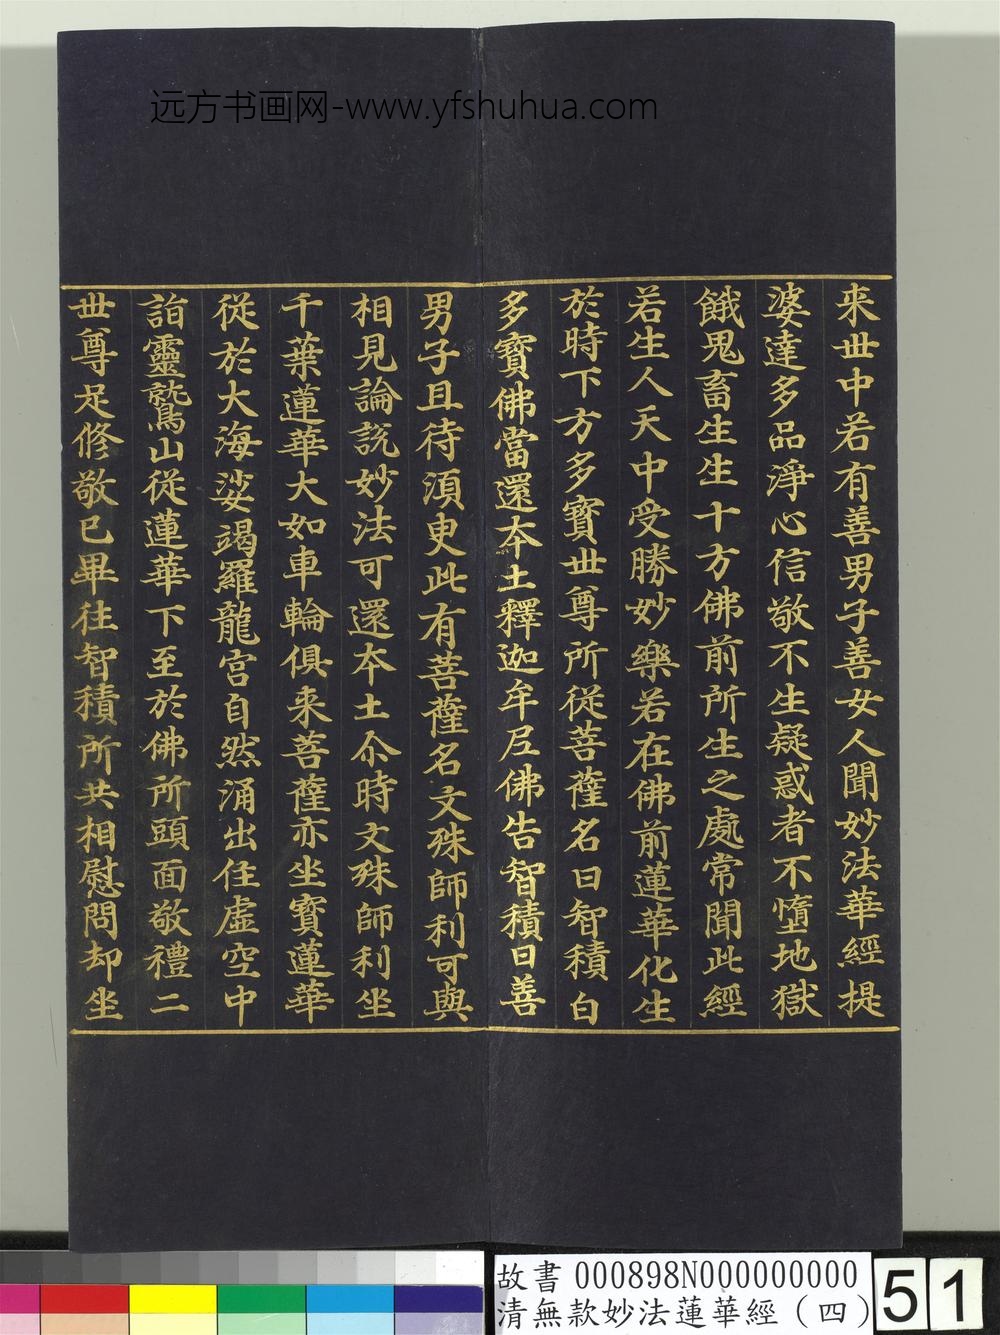 远方书画网-www.yfshuhua.com
来世中若有善男子善女人聞妙法華經提
婆達多品淨心信敬不生疑惑者不墮地獄
餓鬼畜生生十方佛前所生之處常聞此經
若生人天中受勝妙樂若在佛前蓮華化生
於時下方多寶世尊所從菩薩名曰智積白
多寶佛當還本土釋迦牟尼佛告智積曰善
男子且待須臾此有菩薩名文殊師利可與
相見論說妙法可還本土尒時文殊師利坐
千葉蓮華大如車輪俱来菩薩亦坐寶蓮華
從於大海娑竭羅龍宮自然涌出住虛空中
詣靈鷲山從蓮華下至於佛所頭面敬禮二
世尊足修敬已畢往智積所共相慰問却坐
故書 000898N000000000
清無款妙法蓮華經(四)
51